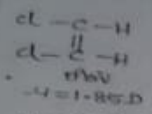 Cl - C - H
||
Cl - C - H
μ = 1.85 D